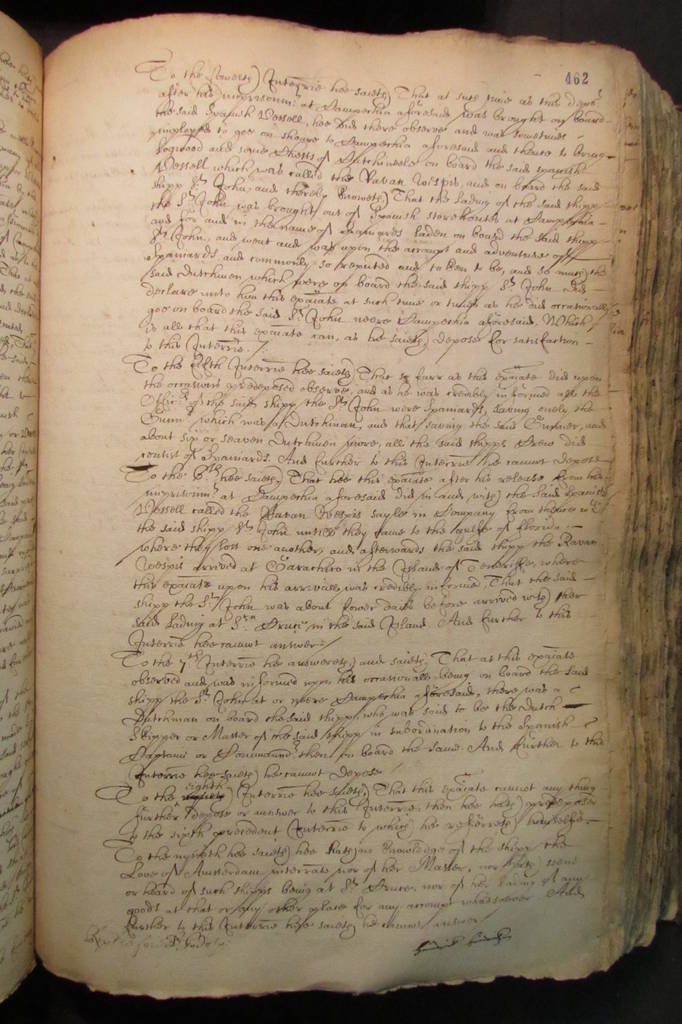 462
To the fourth Interrie hee saieth That at such time as this depont
after his imprisonmt at Campechia aforesaid was brought on board
the said Spanish Vessell, hee did there observe and was sometimes
imployed to goe on shoare to Campechia aforesaid and thence to bring
logwood and some Chests of Cutchineele on board the said Spanish
Vessell which was called the Ravan Vespis, and on board the said
shipp St John, and thereby knoweth That the lading of the said shipp
the St John was brought out of Spanish storehouses at Campechia
and for and in the name of Spaniards laden on board the said shipp
St John, and went and was upon the accompt and adventure of
Spaniards and commonly so reputed and taken to be, and so much the
said Dutchmen which were on board the said shipp St John did
declare unto him this examinate at such time or times as he did occasionally
goe on board the said St John neere Campechia aforesaid. Which
is all that this examinate can, as he saieth depose for satisfaction
to this Interrie./
To the fifth Interrie hee saieth That so farr as this examinate did upon
the occasions predeposed observe, and as he was credibly informed all the
Officers of the said shipp the St John were Spaniards, saving onely the
Gunner which was a Dutchman, and that saving the said Gunner, and
about six or seaven Dutchmen more, all the said shipps Crew did
consist of Spaniards. And further to this Interrie he cannot depose
To the 6th hee saieth That hee this examinate after his release from his
imprisonmt at Campechia aforesaid did in and with the said Spanish
Vessell called the Ravan Vespis sayle in Company from thence with
the said shipp St John untill they came to the Gulfe of Florida
where they lost one another, and afterwards the said shipp the Ravan
Vespis arrived at Garachico in the Island of Teneriffe, where
this examinate upon his arrivall was credibly informed That the said
shipp the St John was about fower daies before arrived with her
said lading at Sta Cruce in the said Island. And further to this
Interrie hee cannot answer/
To the 7th Interrie hee answereth and saieth That as this examinate
observed and was informed upon his occasionall being on board the said
shipp the St John at or neere Campechia aforesaid, there was a
Dutchman on board the said shipp who was said to be the Dutch
Skipper or Master of the said shipp in subordination to the Spanish
Captaine or Commander then on board the same. And further to this
Interrie hee saieth he cannot depose
To the eighth Interrie hee saieth That this examinate cannot any thing
further depose or answer to this Interrie then hee hath predeposed
to the sixth precedent Interrie to which hee referreth himselfe
To the nyneth hee saieth hee hath not knowledge of the shipp the
Love of Amsterdam interrate nor of her Master, nor hath seene
or heard of such shipps being at St Cruce, nor of her lading of any
goods at that or any other place for any accompt whatsoever And
further to this Interrie hee saieth he cannot answer/